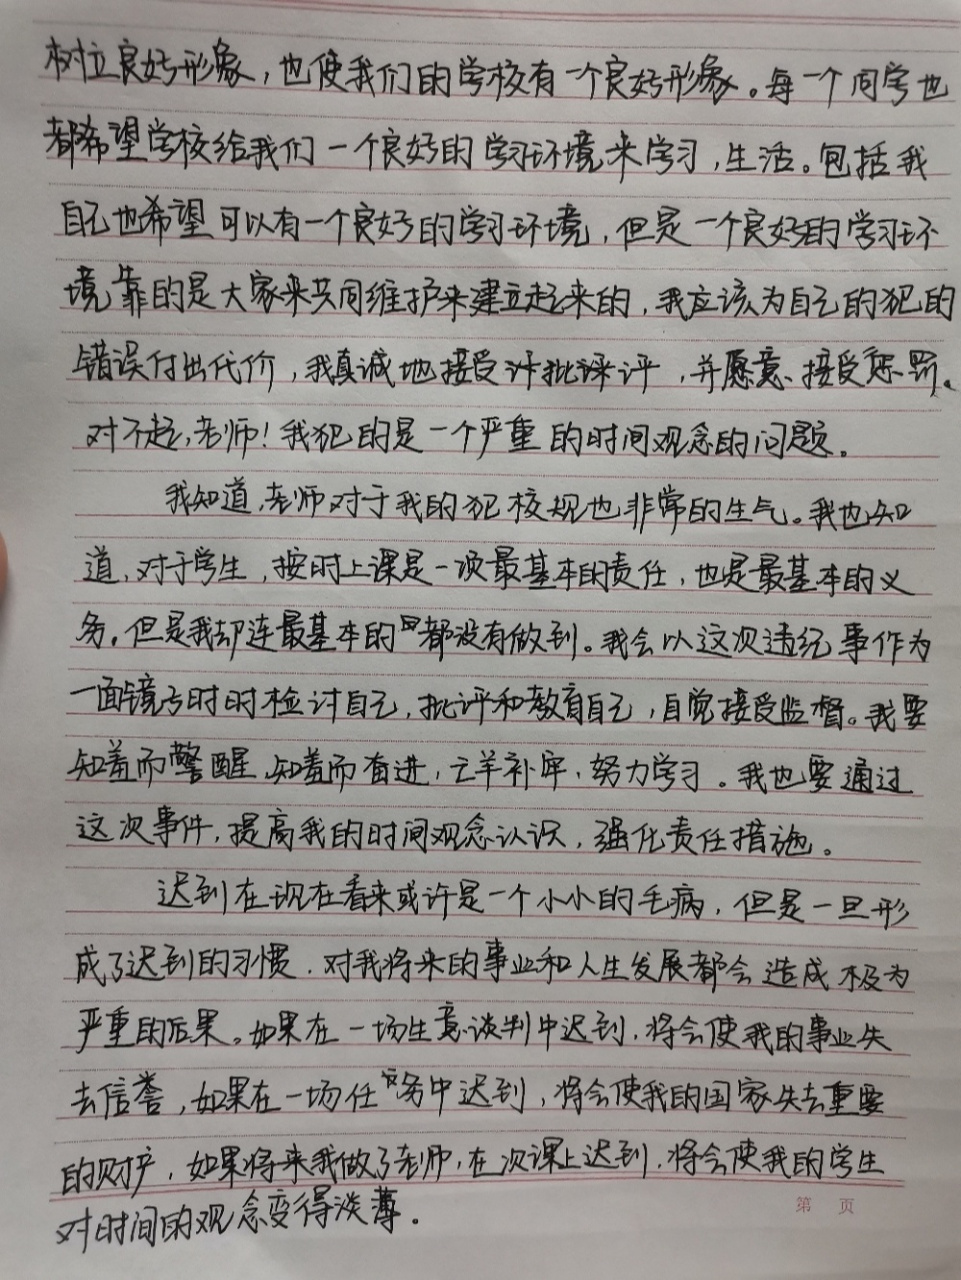 树立良好形象，也使我们的学校有一个良好形象。每一个同学也
都希望学校给我们一个良好的学习环境来学习，生活。包括我
自己也希望可以有一个良好的学习环境，但是一个良好的学习环
境靠的是大家来共同维护来建立起来的，我应该为自己的犯的
错误付出代价，我真诚地接受批评，并愿意、接受惩罚。
对不起，老师！我犯的是一个严重的时间观念的问题。
我知道，老师对于我的犯校规也非常的生气。我也知
道，对于学生，按时上课是一项最基本的责任，也是最基本的义
务。但是我却连最基本的都没有做到。我会以这次违纪事作为
一面镜子时时检讨自己，批评和教育自己，自觉接受监督。我要
知羞而警醒，知羞而奋进，亡羊补牢，努力学习。我也要通过
这次事件，提高我的时间观念认识，强化责任措施。
迟到在现在看来或许是一个小小的毛病，但是一旦形
成了迟到的习惯，对我将来的事业和人生发展都会造成极为
严重的后果。如果在一场生意谈判中迟到，将会使我的事业失
去信誉，如果在一场任务中迟到，将会使我的国家失去重要
的财产，如果将来我做了老师，在次课上迟到，将会使我的学生
对时间的观念变得淡薄。
第 页